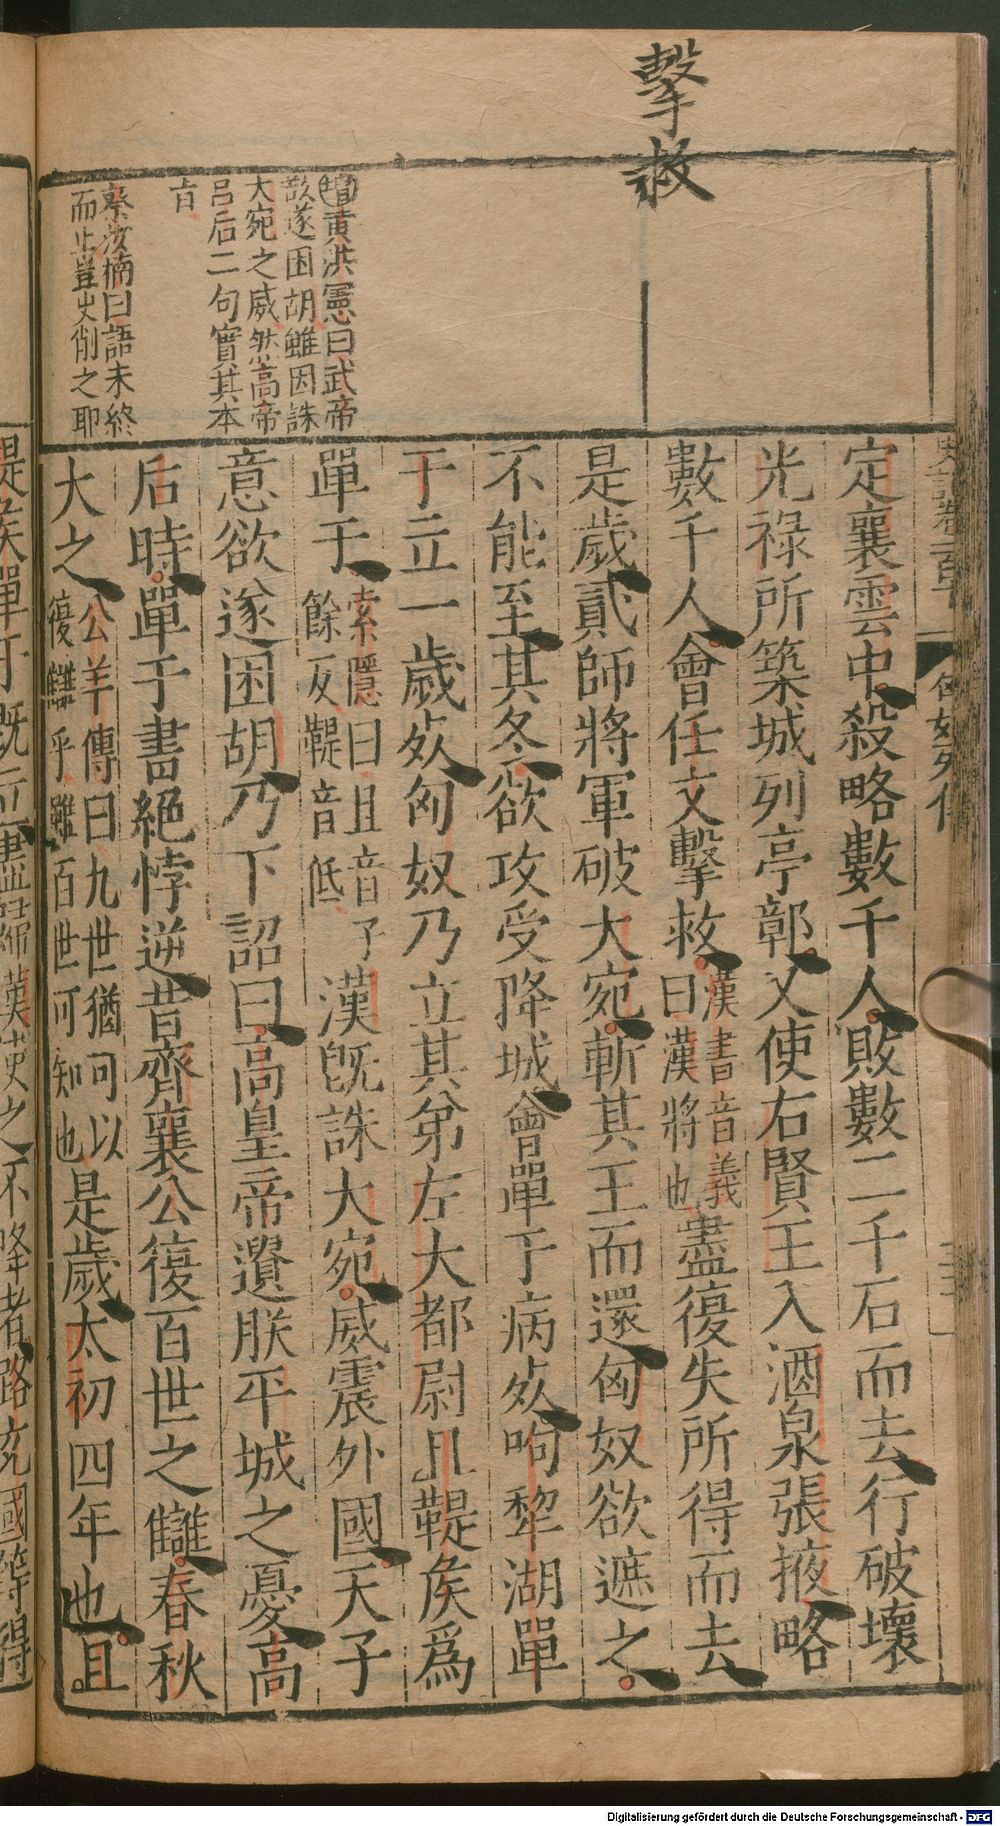 擊救
定襄雲中殺略數千人敗數二千石而去行破壞
光祿所築城列亭鄣又使右賢王入酒泉張掖略
數千人會任文擊救漢書音義曰漢將也盡復失所得而去
是歲貳師將軍破大宛斬其王而還匈奴欲遮之
不能至其冬欲攻受降城會單于病死呴犂湖單
于立一歲死匈奴乃立其弟左大都尉且鞮矦爲
單于索隱曰且音子餘反鞮音低漢旣誅大宛威震外國天子
意欲遂困胡乃下詔曰高皇帝遺朕平城之憂高
后時單于書絕悖逆昔齊襄公復百世之讎春秋
大之公羊傳曰九世猶可以復讎乎雖百世可知也是歲太初四年也且
增黃洪憲曰武帝
欲遂困胡雖因誅
大宛之威然高帝
呂后二句實其本
㫖
蔡汝楠曰語未終
而止豈史削之耶
鞮矦單于旣立盡歸漢使之不降者路充國等得
Digitalisierung gefördert durch die Deutsche Forschungsgemeinschaft - DFG